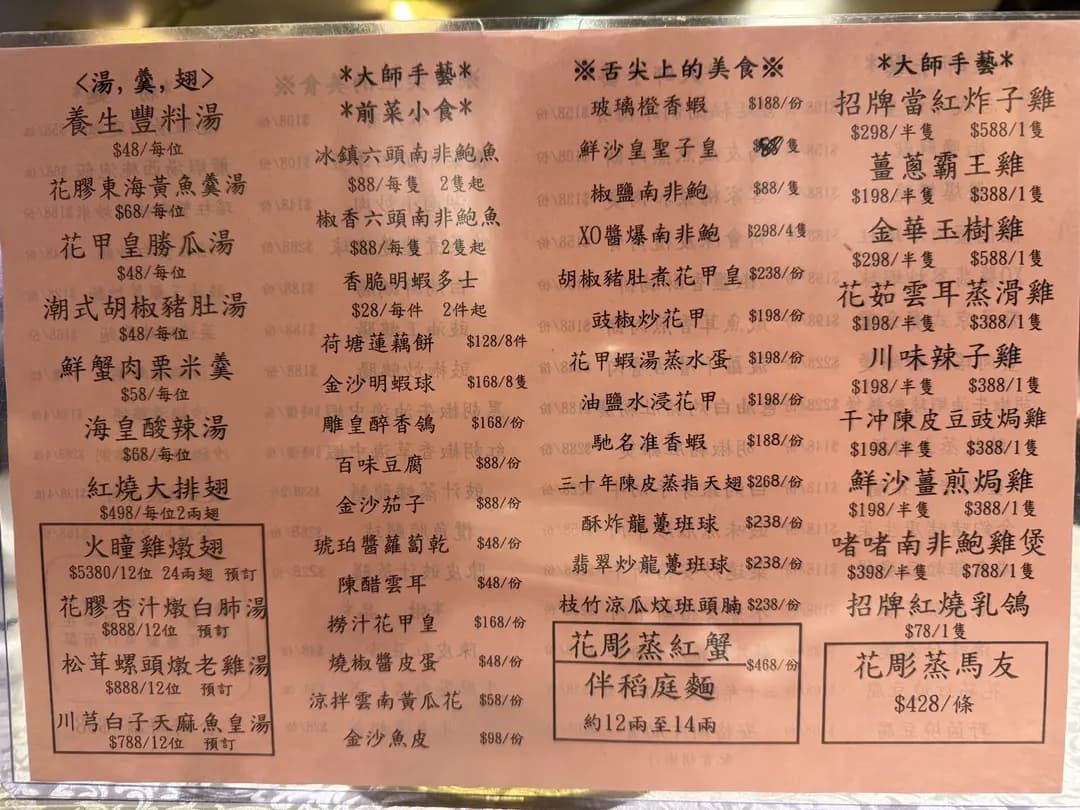 <湯,羹,翅>
養生豐料湯
$48/每位
花膠東海黃魚羹湯
$68/每位
花甲皇勝瓜湯
$48/每位
潮式胡椒豬肚湯
$48/每位
鮮蟹肉粟米羹
$58/每位
海皇酸辣湯
$68/每位
紅燒大排翅
$498/每位2兩翅
火瞳雞燉翅
$5380/12位 24兩翅 預訂
花膠杏汁燉白肺湯
$888/12位 預訂
松茸螺頭燉老雞湯
$888/12位 預訂
川芎白子天麻魚皇湯
$788/12位 預訂
*大師手藝*
*前菜小食*
冰鎮六頭南非鮑魚
$88/每隻 2隻起
椒香六頭南非鮑魚
$88/每隻 2隻起
香脆明蝦多士
$28/每件 2件起
荷塘蓮藕餅 $128/8件
金沙明蝦球 $168/8隻
雕皇醉香鴿 $168/份
百味豆腐 $88/份
金沙茄子 $88/份
琥珀醬蘿蔔乾 $48/份
陳醋雲耳 $48/份
撈汁花甲皇 $168/份
燒椒醬皮蛋 $48/份
涼拌雲南黃瓜花 $58/份
金沙魚皮 $98/份
※舌尖上的美食※
玻璃橙香蝦 $188/份
鮮沙皇聖子皇 /隻
椒鹽南非鮑 $88/隻
XO醬爆南非鮑 $298/4隻
胡椒豬肚煮花甲皇 $238/份
豉椒炒花甲 $198/份
花甲蝦湯蒸水蛋 $198/份
油鹽水浸花甲 $198/份
馳名准香蝦 $188/份
三十年陳皮蒸指天翅 $268/份
酥炸龍躉班球 $238/份
翡翠炒龍躉班球 $238/份
枝竹涼瓜炆班頭腩 $238/份
花彫蒸紅蟹
$468/份
伴稻庭麵
約12兩至14兩
*大師手藝*
招牌當紅炸子雞
$298/半隻 $588/1隻
薑蔥霸王雞
$198/半隻 $388/1隻
金華玉樹雞
$298/半隻 $588/1隻
花茹雲耳蒸滑雞
$198/半隻 $388/1隻
川味辣子雞
$198/半隻 $388/1隻
干沖陳皮豆豉焗雞
$198/半隻 $388/1隻
鮮沙薑煎焗雞
$198/半隻 $388/1隻
啫啫南非鮑雞煲
$398/半隻 $788/1隻
招牌紅燒乳鴿
$78/1隻
花彫蒸馬友
$428/條